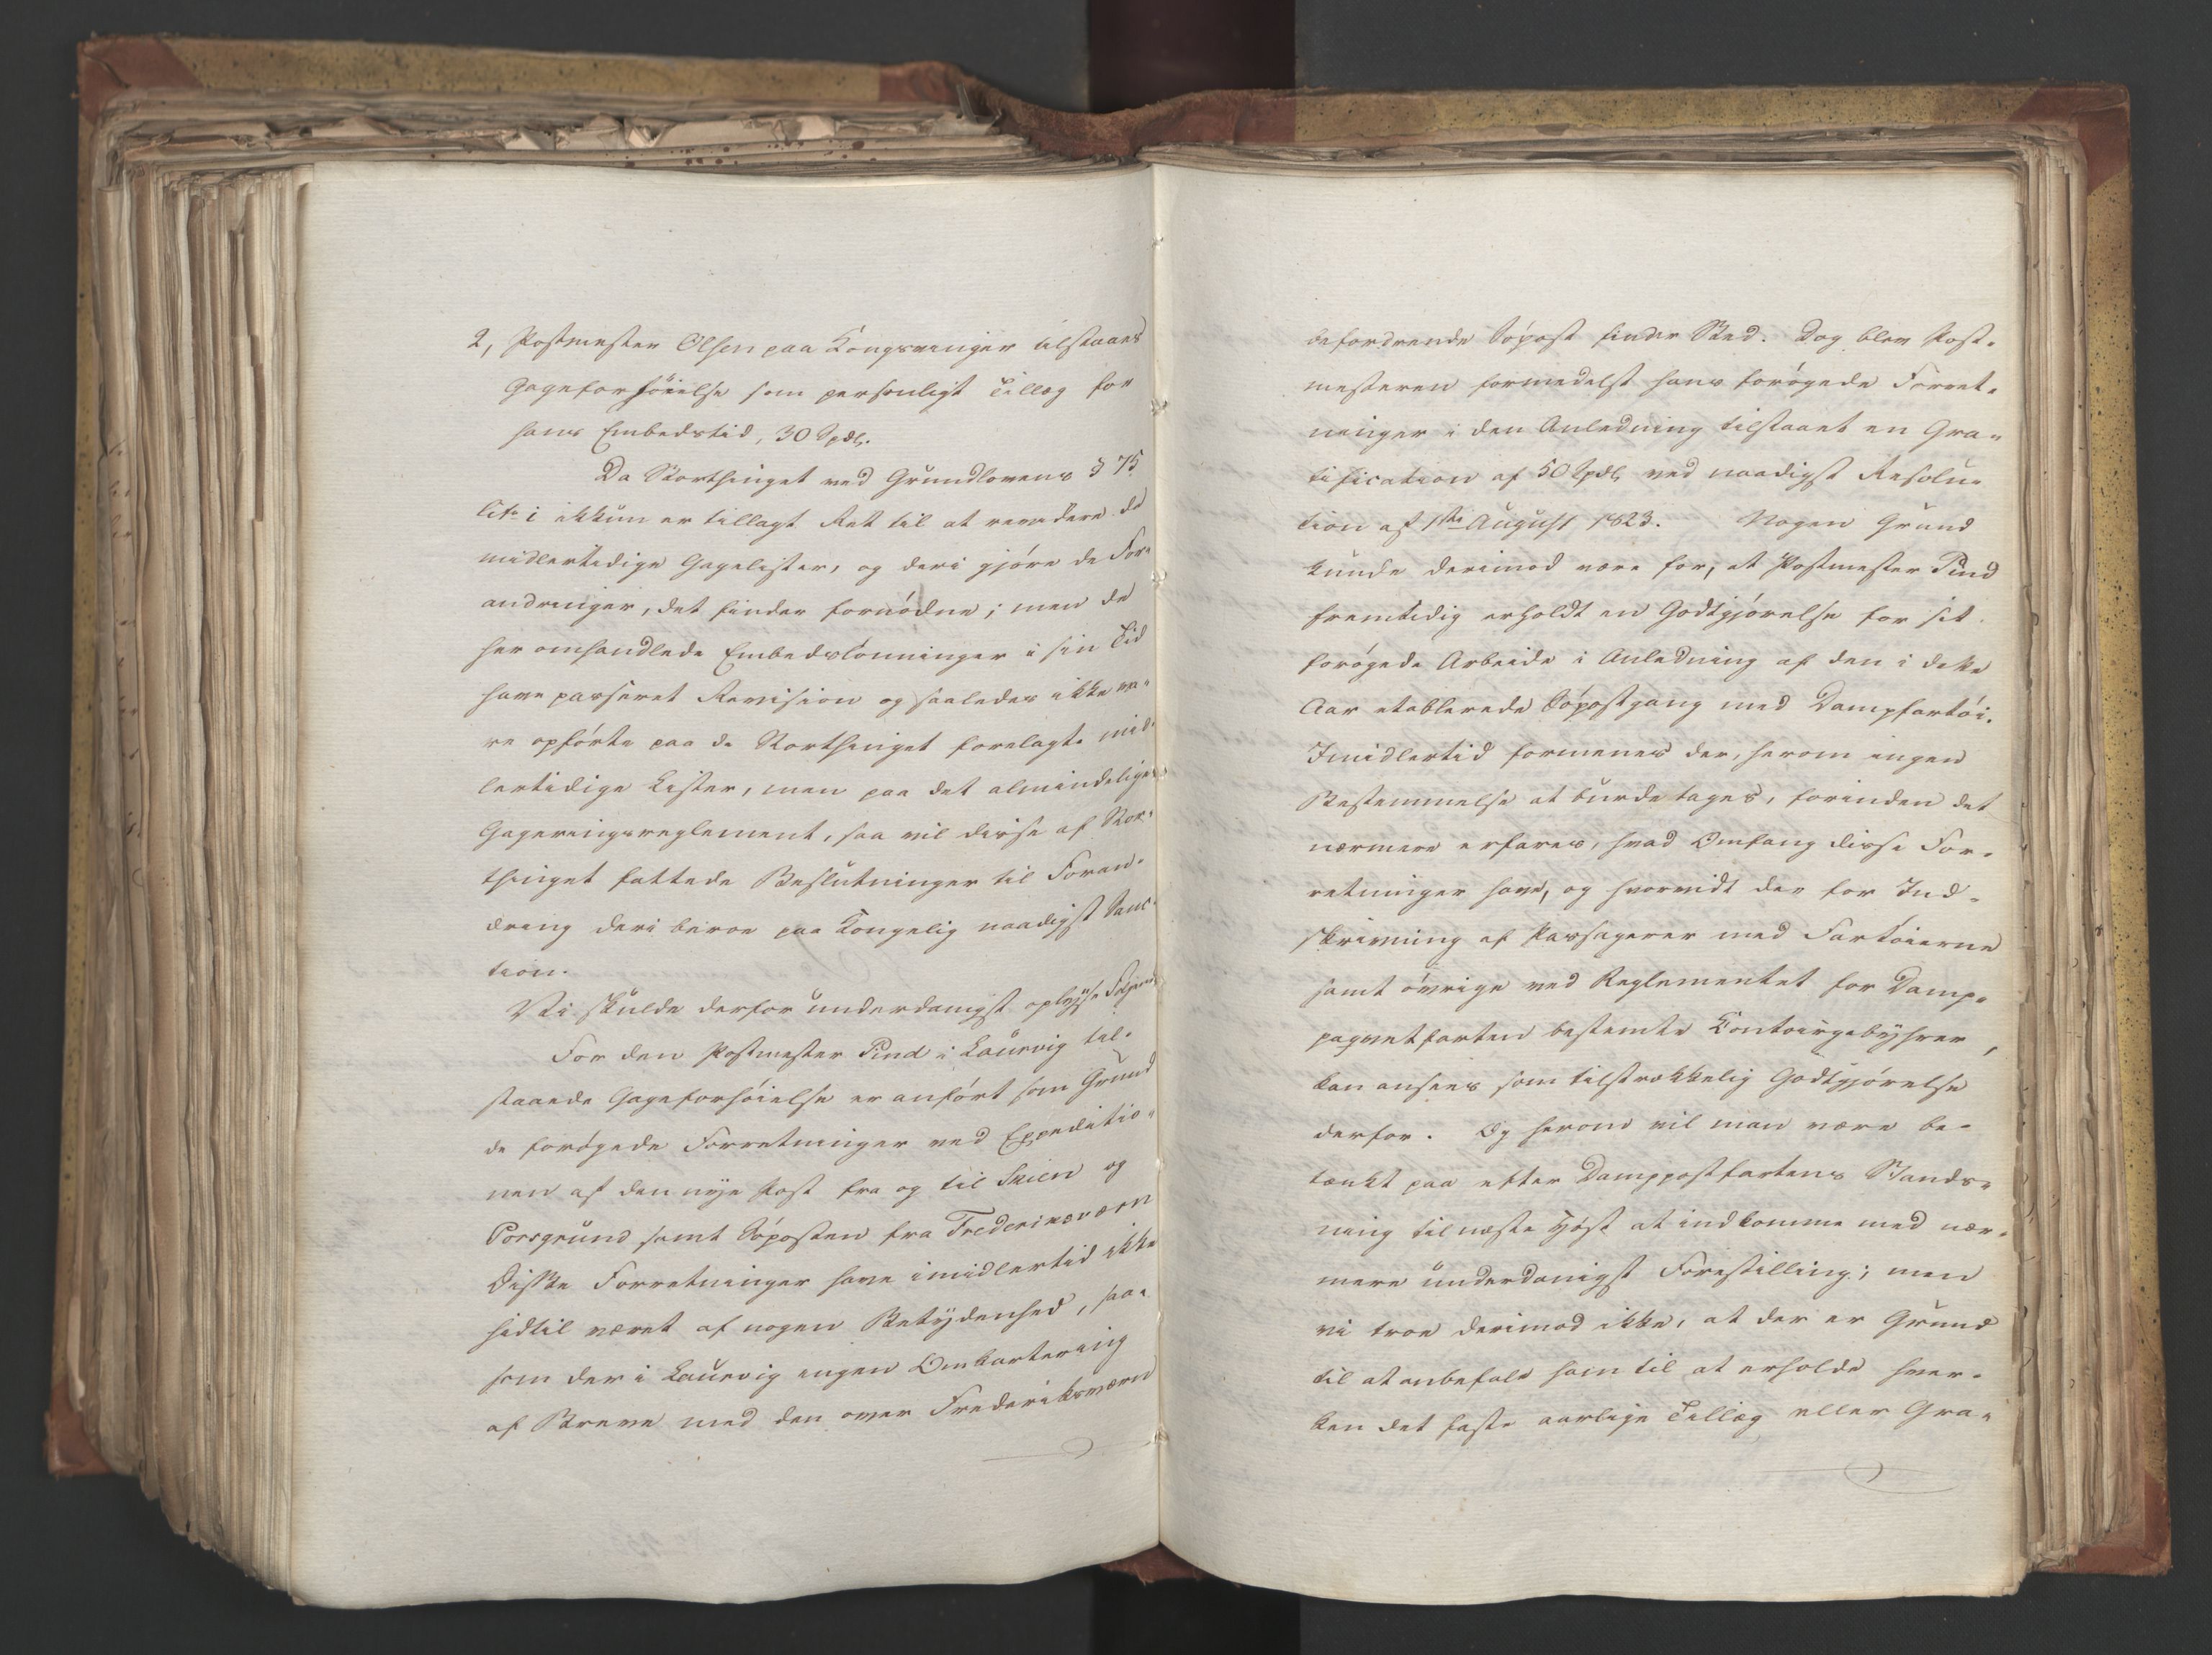 2, Postmester Olsen paa Kongsvinger tilstaaes
Gageforhöielse som personligt Tillæg for
hans Embedstid, 30 Spdl.
Da Storthinget ved Grundlovens § 75
litr i ikkun er tillagt Ret til at revidere de
midlertidige Gagelister, og deri gjöre de For-
andringer, det finder fornödne; men de
her omhandlede Embedslönninger i sin Tid
have passeret Revision og saaledes ikke væ-
re opförte paa de Storthinget forelagte mid-
lertidige Lister, men paa det almindelige
Gageringsreglement, saa vil disse af Stor-
thinget fattede Beslutninger til Foran-
dring deri beroe paa Kongelig naadigst Sanc-
tion.
Vi skulde derfor underdanigst oplyse Fölgende
For den Postmester Pind i Laurvig til-
staaede Gageforhöielse er anfört som Grund
de forögede Forretninger ved Expeditio-
nen af den nye Post fra og til Skien og
Porsgrund samt Söposten fra Frederiksværn
Disse Forretninger have imidlertid ikke
hidtil været af nogen Betydenhed, saa-
som der i Laurvig ingen Omkartering
af Breve med den over Frederiksværn
befordrende Söpost finder Sted. Dog blev Post-
mesteren formedelst hans forögede Forret-
ninger i den Anledning tilstaaet en Gra-
tification af 50 Spdl, ved naadigst Resolu-
tion af 1ste August 1823. Nogen Grund
kunde derimod være for, at Postmester Pind
fremtidig erholdt en Godtgjörelse for sit
forögede Arbeide i Anledning af den i dette
Aar etablerede Söpostgang med Dampfartöi.
Imidlertid formenes der, herom ingen
Bestemmelse at burde tages, forinden det
nærmere erfares, hvad Omfang disse For-
retninger have, og hvorvidt der for Ind-
skrivning af Passagerer med Fartöierne
samt övrige ved Reglementet for Damp-
paquetfarten bestemte Contoirgebyhrer,
kan ansees som tilstrækkelig Godtgjörelse
derfor. Og herom vil man være be-
tænkt paa efter Damppostfartens Stands-
ning til næste Höst at indkomme med nær-
mere underdanigst Forestilling; men
vi troe derimod ikke, at der er Grund
til at anbefale ham til at erholde hver-
ken det faste aarlige Tillæg eller Gra-